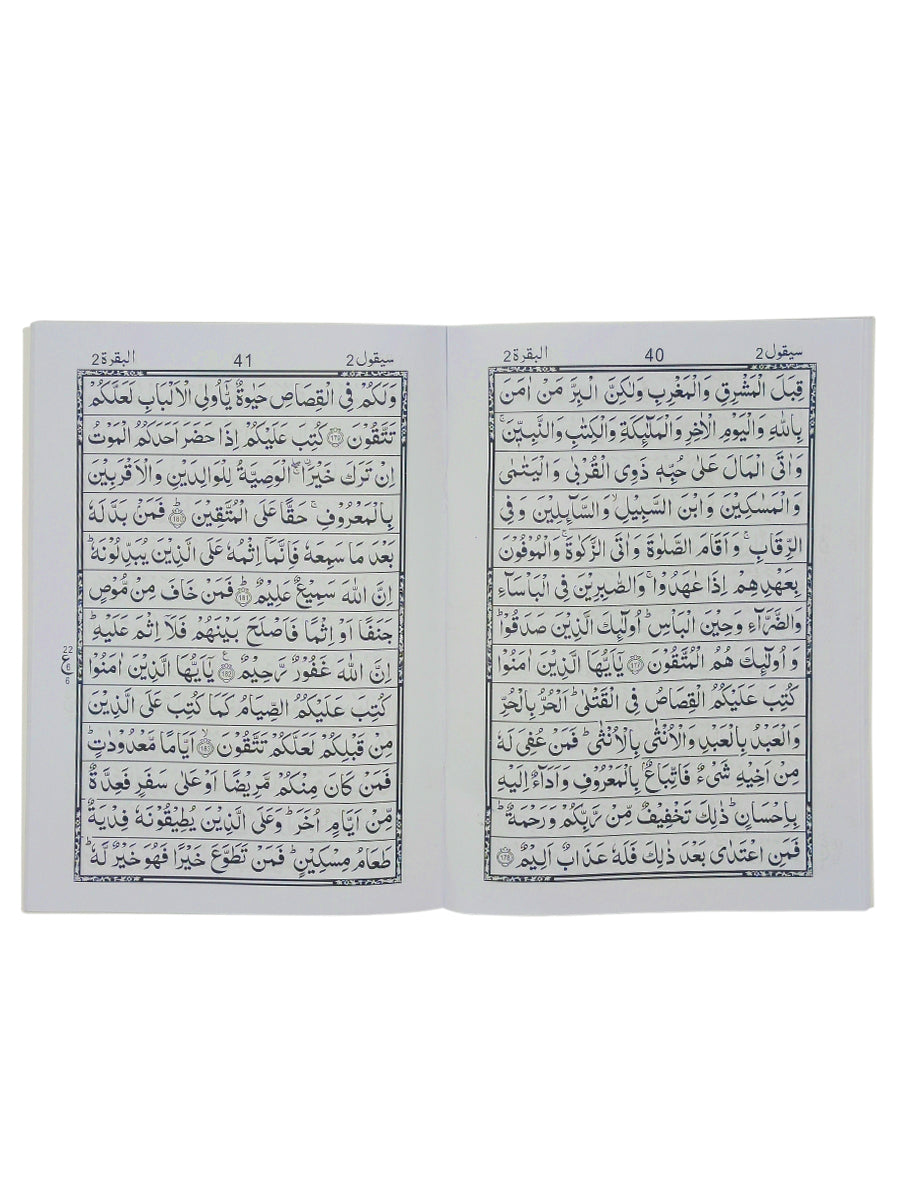 سيقول 2 40 البقرة 2
قِبَلَ الْمَشْرِقِ وَالْمَغْرِبِ وَلٰكِنَّ الْبِرَّ مَنْ اٰمَنَ
بِاللّٰهِ وَالْيَوْمِ الْاٰخِرِ وَالْمَلٰٓئِكَةِ وَالْكِتٰبِ وَالنَّبِيّٖنَ ۚ
وَاٰتَى الْمَالَ عَلٰى حُبِّهٖ ذَوِى الْقُرْبٰى وَالْيَتٰمٰى
وَالْمَسٰكِيْنَ وَابْنَ السَّبِيْلِ ۙ وَالسَّآئِلِيْنَ وَفِى
الرِّقَابِ ۚ وَاَقَامَ الصَّلٰوةَ وَاٰتَى الزَّكٰوةَ ۚ وَالْمُوْفُوْنَ
بِعَهْدِهِمْ اِذَا عٰهَدُوْا ۚ وَالصّٰبِرِيْنَ فِى الْبَاْسَآءِ
وَالضَّرَّآءِ وَحِيْنَ الْبَاْسِ ؕ اُولٰٓئِكَ الَّذِيْنَ صَدَقُوْا ؕ
وَاُولٰٓئِكَ هُمُ الْمُتَّقُوْنَ 177 يٰٓاَيُّهَا الَّذِيْنَ اٰمَنُوْا
كُتِبَ عَلَيْكُمُ الْقِصَاصُ فِى الْقَتْلٰى ؕ اَلْحُرُّ بِالْحُرِّ
وَالْعَبْدُ بِالْعَبْدِ وَالْاُنْثٰى بِالْاُنْثٰى ؕ فَمَنْ عُفِىَ لَهٗ
مِنْ اَخِيْهِ شَىْءٌ فَاتِّبَاعٌۢ بِالْمَعْرُوْفِ وَاَدَآءٌ اِلَيْهِ
بِاِحْسَانٍ ؕ ذٰلِكَ تَخْفِيْفٌ مِّنْ رَّبِّكُمْ وَرَحْمَةٌ ؕ
فَمَنِ اعْتَدٰى بَعْدَ ذٰلِكَ فَلَهٗ عَذَابٌ اَلِيْمٌ 178
سيقول 2 41 البقرة 2
وَلَكُمْ فِى الْقِصَاصِ حَيٰوةٌ يّٰٓاُولِى الْاَلْبَابِ لَعَلَّكُمْ
تَتَّقُوْنَ 179 كُتِبَ عَلَيْكُمْ اِذَا حَضَرَ اَحَدَكُمُ الْمَوْتُ
اِنْ تَرَكَ خَيْرَا ۖۚ اۨلْوَصِيَّةُ لِلْوَالِدَيْنِ وَالْاَقْرَبِيْنَ
بِالْمَعْرُوْفِ ۚ حَقًّا عَلَى الْمُتَّقِيْنَ ؕ 180 فَمَنْۢ بَدَّلَهٗ
بَعْدَ مَا سَمِعَهٗ فَاِنَّمَآ اِثْمُهٗ عَلَى الَّذِيْنَ يُبَدِّلُوْنَهٗ ؕ
اِنَّ اللّٰهَ سَمِيْعٌ عَلِيْمٌ ؕ 181 فَمَنْ خَافَ مِنْ مُّوْصٍ
جَنَفًا اَوْ اِثْمًا فَاَصْلَحَ بَيْنَهُمْ فَلَآ اِثْمَ عَلَيْهِ ؕ
اِنَّ اللّٰهَ غَفُوْرٌ رَّحِيْمٌ 182 يٰٓاَيُّهَا الَّذِيْنَ اٰمَنُوْا
22 ع 6 6
كُتِبَ عَلَيْكُمُ الصِّيَامُ كَمَا كُتِبَ عَلَى الَّذِيْنَ
مِنْ قَبْلِكُمْ لَعَلَّكُمْ تَتَّقُوْنَ ۙ 183 اَيَّامًا مَّعْدُوْدٰتٍ ؕ
فَمَنْ كَانَ مِنْكُمْ مَّرِيْضًا اَوْ عَلٰى سَفَرٍ فَعِدَّةٌ
مِّنْ اَيَّامٍ اُخَرَ ؕ وَعَلَى الَّذِيْنَ يُطِيْقُوْنَهٗ فِدْيَةٌ
طَعَامُ مِسْكِيْنٍ ؕ فَمَنْ تَطَوَّعَ خَيْرًا فَهُوَ خَيْرٌ لَّهٗ ؕ